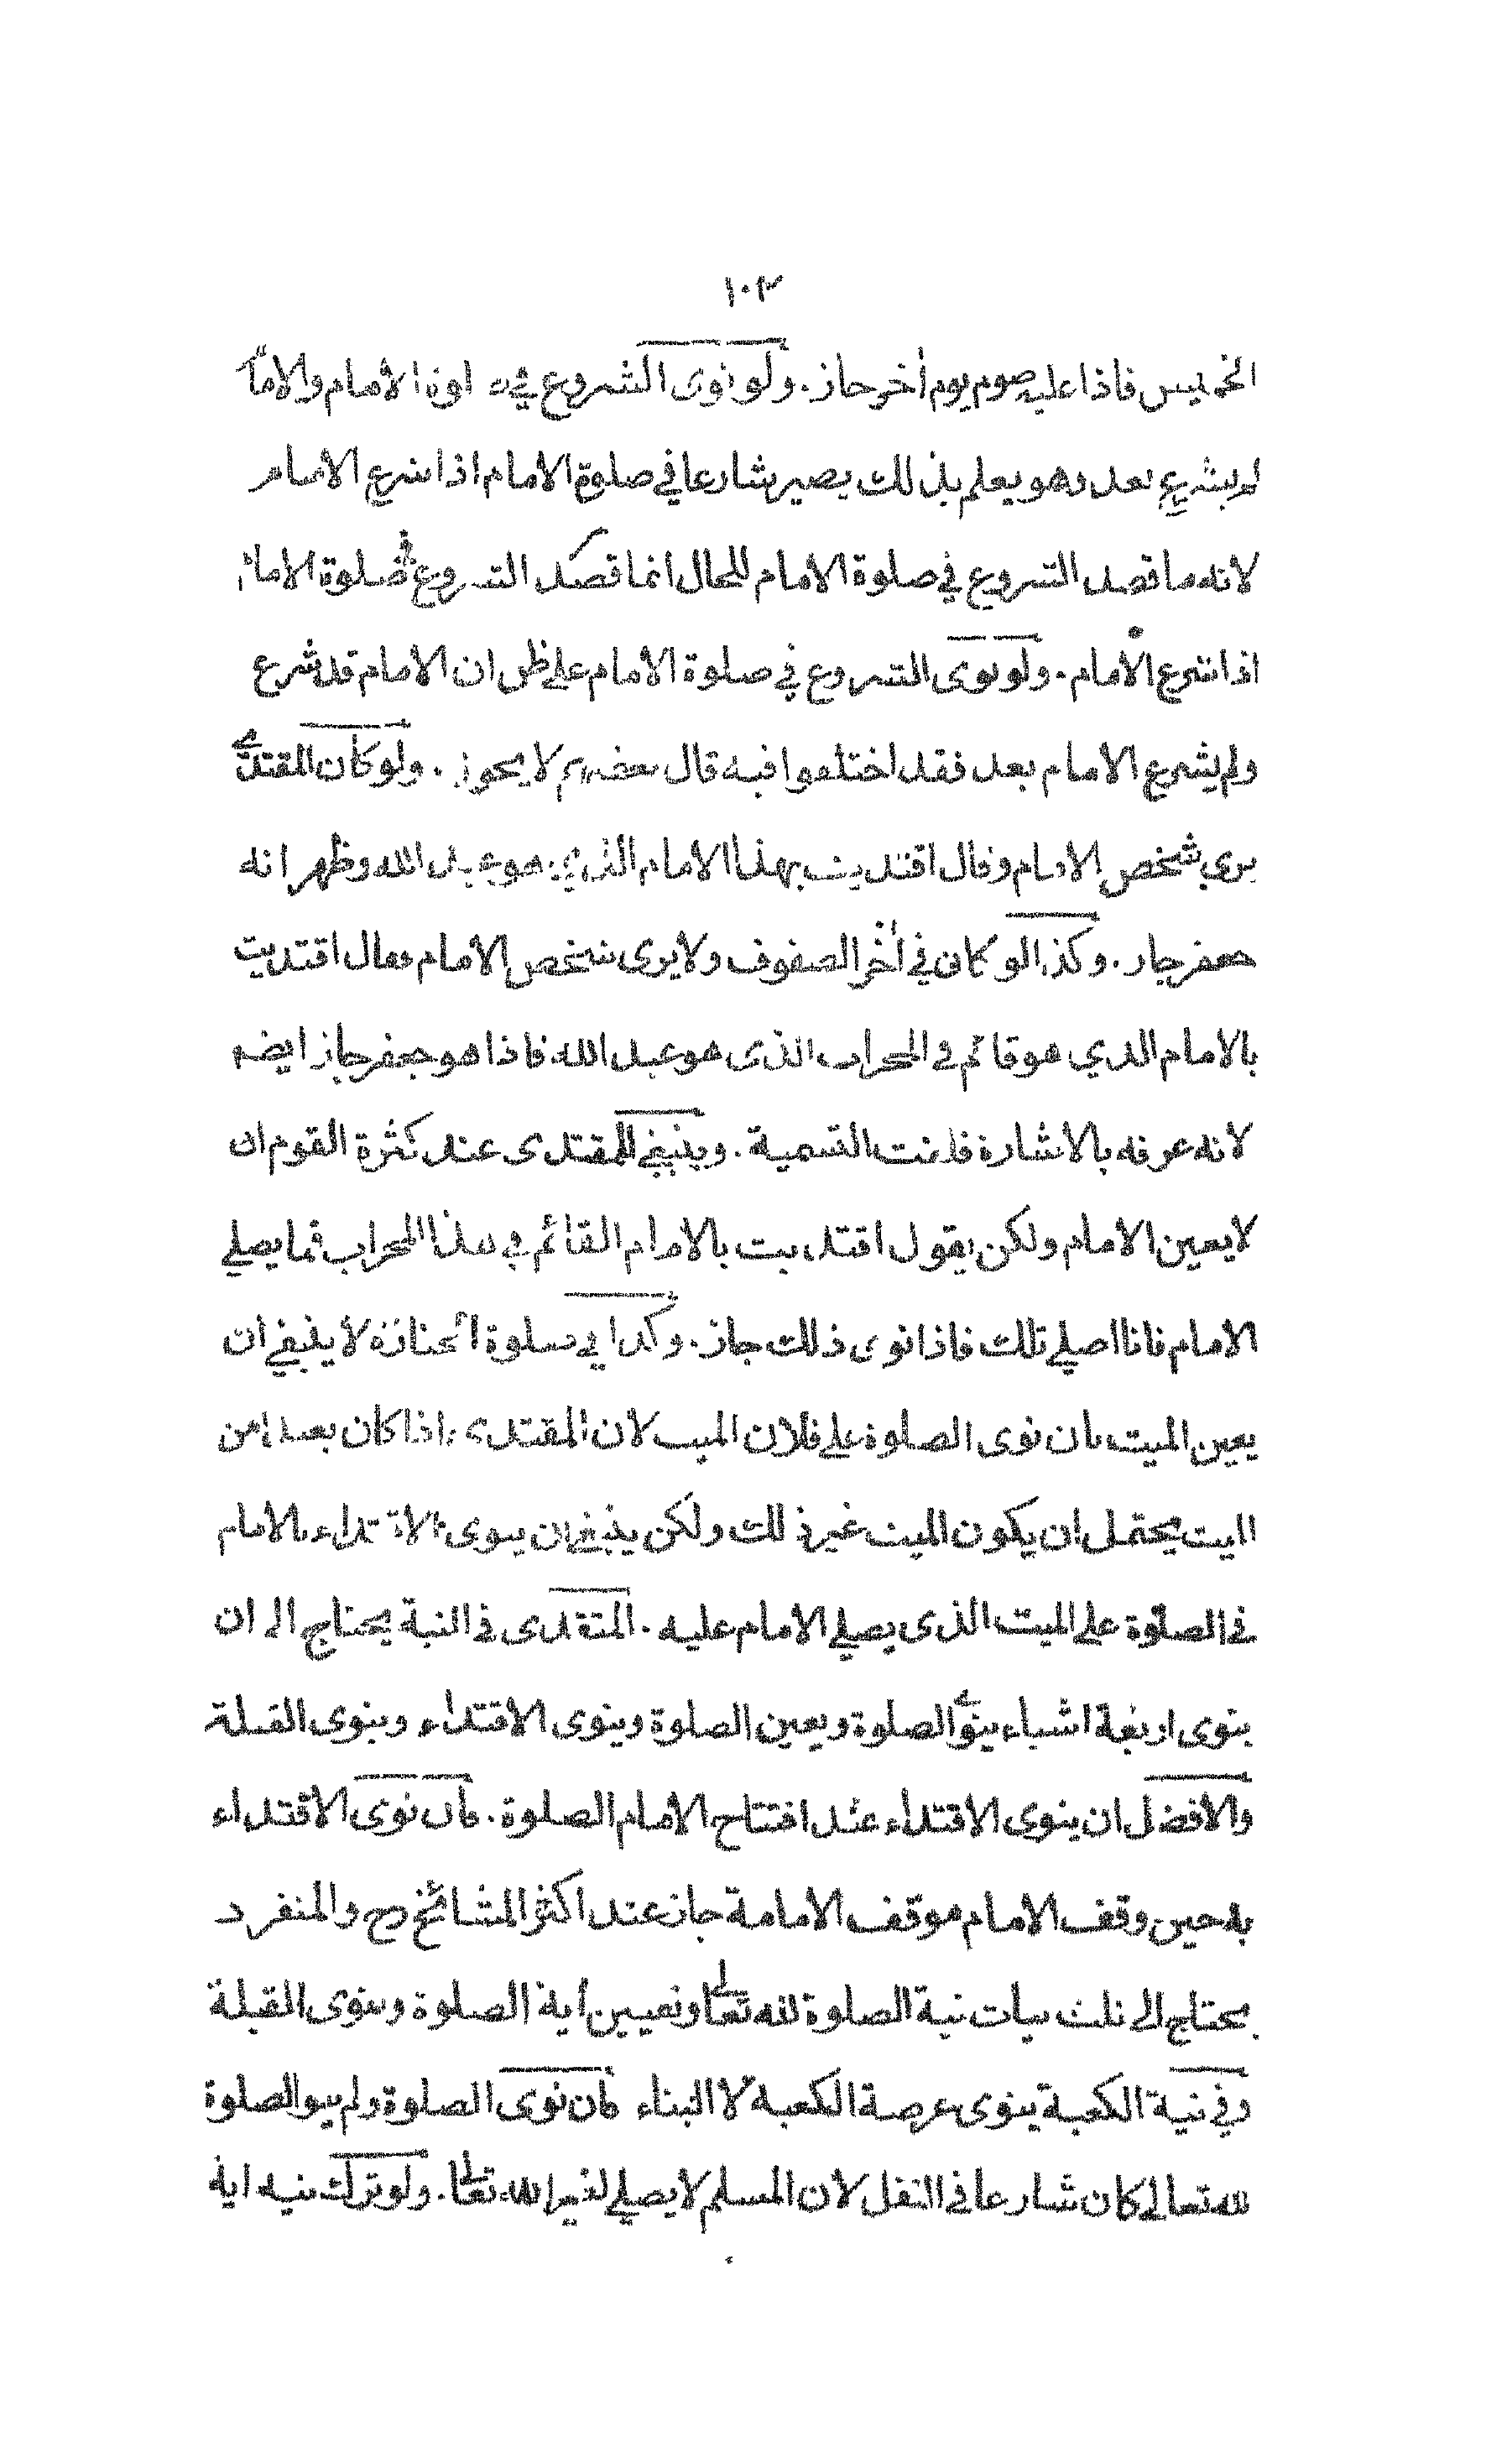 ١٠٣
الخميس فاذا عليه صوم يوم أخر جاز. ولو نوى الشروع في صلوة الامام والامام
لم يشرع بعد وهو يعلم بذلك يصير شارعا في صلوة الامام اذا شرع الامام
لانه ما قصد الشروع في صلوة الامام للحال انما قصد الشروع في صلوة الامام
اذا شرع الامام. ولو نوى الشروع في صلوة الامام على ظن ان الامام قد شرع
ولم يشرع الامام بعد فقد اختلفوا فيه قال بعضهم لا يجوز. ولو كان المقتدي
يرى شخص الامام وقال اقتديت بهذا الامام الذي هو عبد الله وظهر انه
جعفر جاز. وكذا لو كان في أخر الصفوف ولا يرى شخص الامام فقال اقتديت
بالامام الذي هو قائم في المحراب الذى هو عبد الله فاذا هو جعفر جاز ايضه
لانه عرفه بالاشارة فلغت التسمية. وينبغي للمقتدى عند كثرة القوم ان
لا يعين الامام ولكن يقول اقتديت بالامام القائم في هذا المحراب فما يصلي
الامام فانا اصلي تلك فاذا نوى ذلك جاز. وكذا في صلوة الجنازة لا ينبغي ان
يعين الميت بان نوى الصلوة على فلان الميت لان المقتدى اذا كان بعيدا من
الميت يحتمل ان يكون الميت غير ذلك ولكن ينبغي ان ينوى الاقتداء بالامام
في الصلوة على الميت الذى يصلي الامام عليه. المقتدى في النية يحتاج الى ان
ينوى اربعة اشياء ينوي الصلوة ويعين الصلوة وينوى الاقتداء وينوى القبلة
والافضل ان ينوى الاقتداء عند افتتاح الامام الصلوة. فان نوى الاقتداء
به حين وقف الامام موقف الامامة جاز عند اكثر المشائخ رح والمنفرد
يحتاج الى ثلث نيات نية الصلوة لله تعالى وتعيين أية الصلوة وينوى القبلة
وفي نية الكعبة ينوى عرصة الكعبة لا البناء فان نوى الصلوة ولم ينو الصلوة
لله تعالى كان شارعا في النفل لان المسلم لا يصلي لغير الله تعالى. ولو ترك نية اية